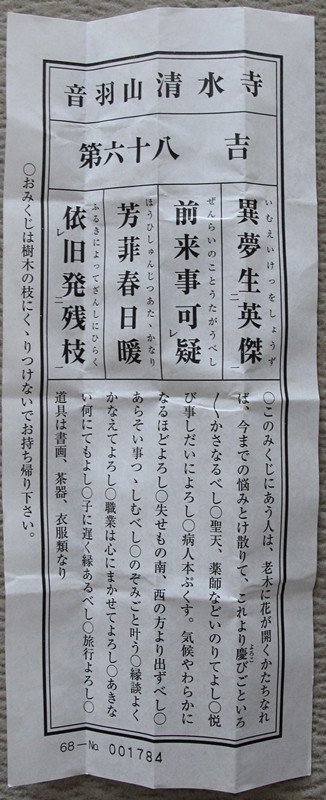 音羽山清水寺
第六十八 吉
異夢生英傑
いむえいけっをしょうず
前来事可疑
ぜんらいのことうたがうべし
芳菲春日暖
ほうひしゅんじつあたゝかなり
依旧発残枝
ふるきによってざんしにひらく
〇このみくじにあう人は、老木に花が開くかたちなれ
ば、今までの悩みとけ散りて、これより慶びごといろ
〳〵かさなるべし〇聖天、薬師などいのりてよし〇悦
び事しだいによろし〇病人本ぷくす。気候やわらかに
なるほどよろし〇失せもの南、西の方より出ずべし〇
あらそい事つゝしむべし〇のぞみごと叶う〇縁談よく
かなえてよろし〇職業は心にまかせてよろし〇あきな
い何にてもよし〇子に遅く縁あるべし〇旅行よろし〇
道具は書画、茶器、衣服類なり
〇おみくじは樹木の枝にくゝりつけないでお持ち帰り下さい。
68-No 001784